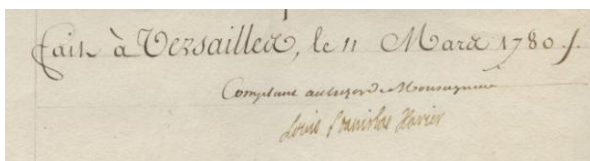 fait à Versailles, le 11 Mars 1780 /.
Comptant au tresor de Monseigneur
Louis Stanislas Xavier